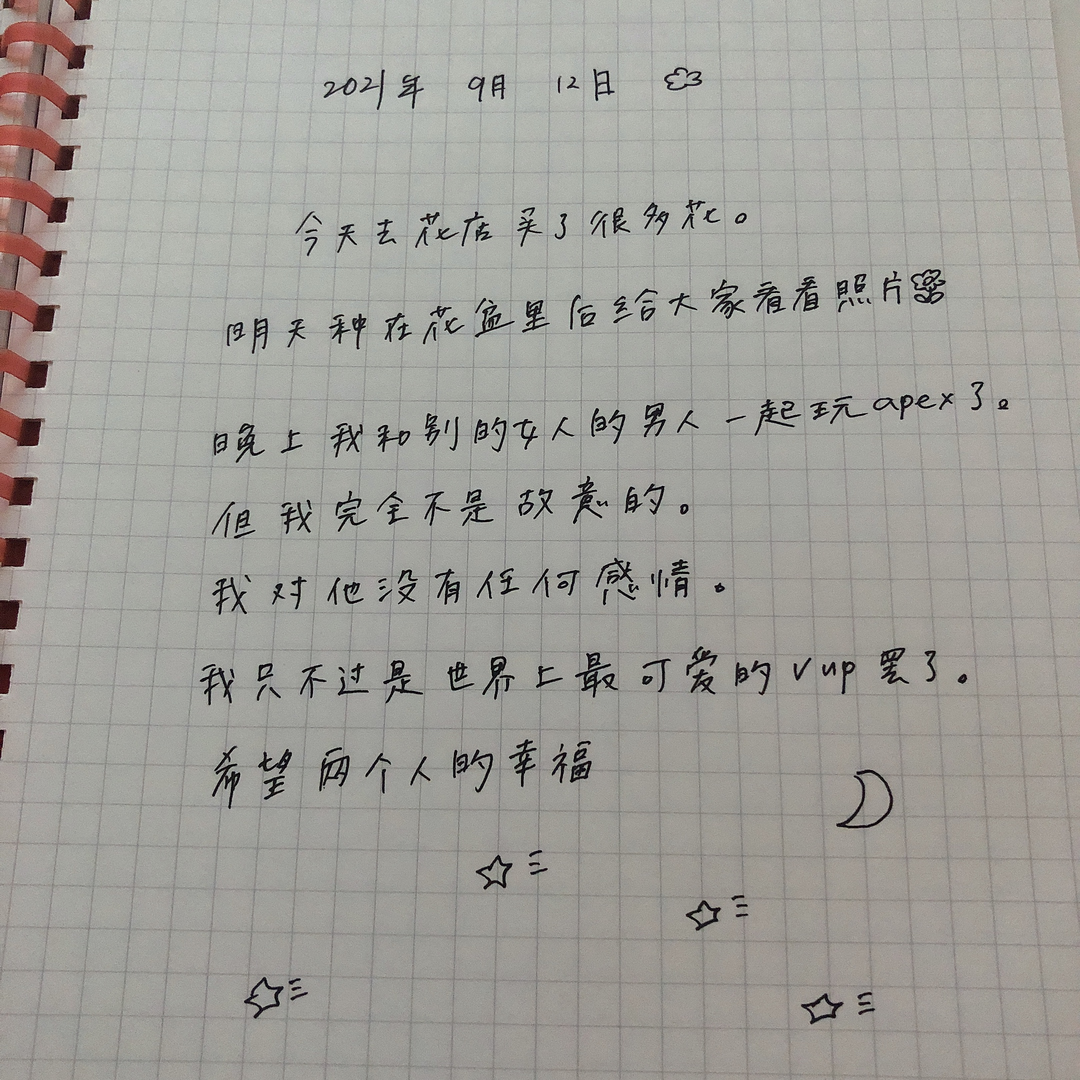 2021年 9月 12日
今天去花店买了很多花。
明天种在花盆里后给大家看看照片
晚上我和别的女人的男人一起玩apex了。
但我完全不是故意的。
我对他没有任何感情。
我只不过是世界上最可爱的vup罢了。
希望两个人的幸福